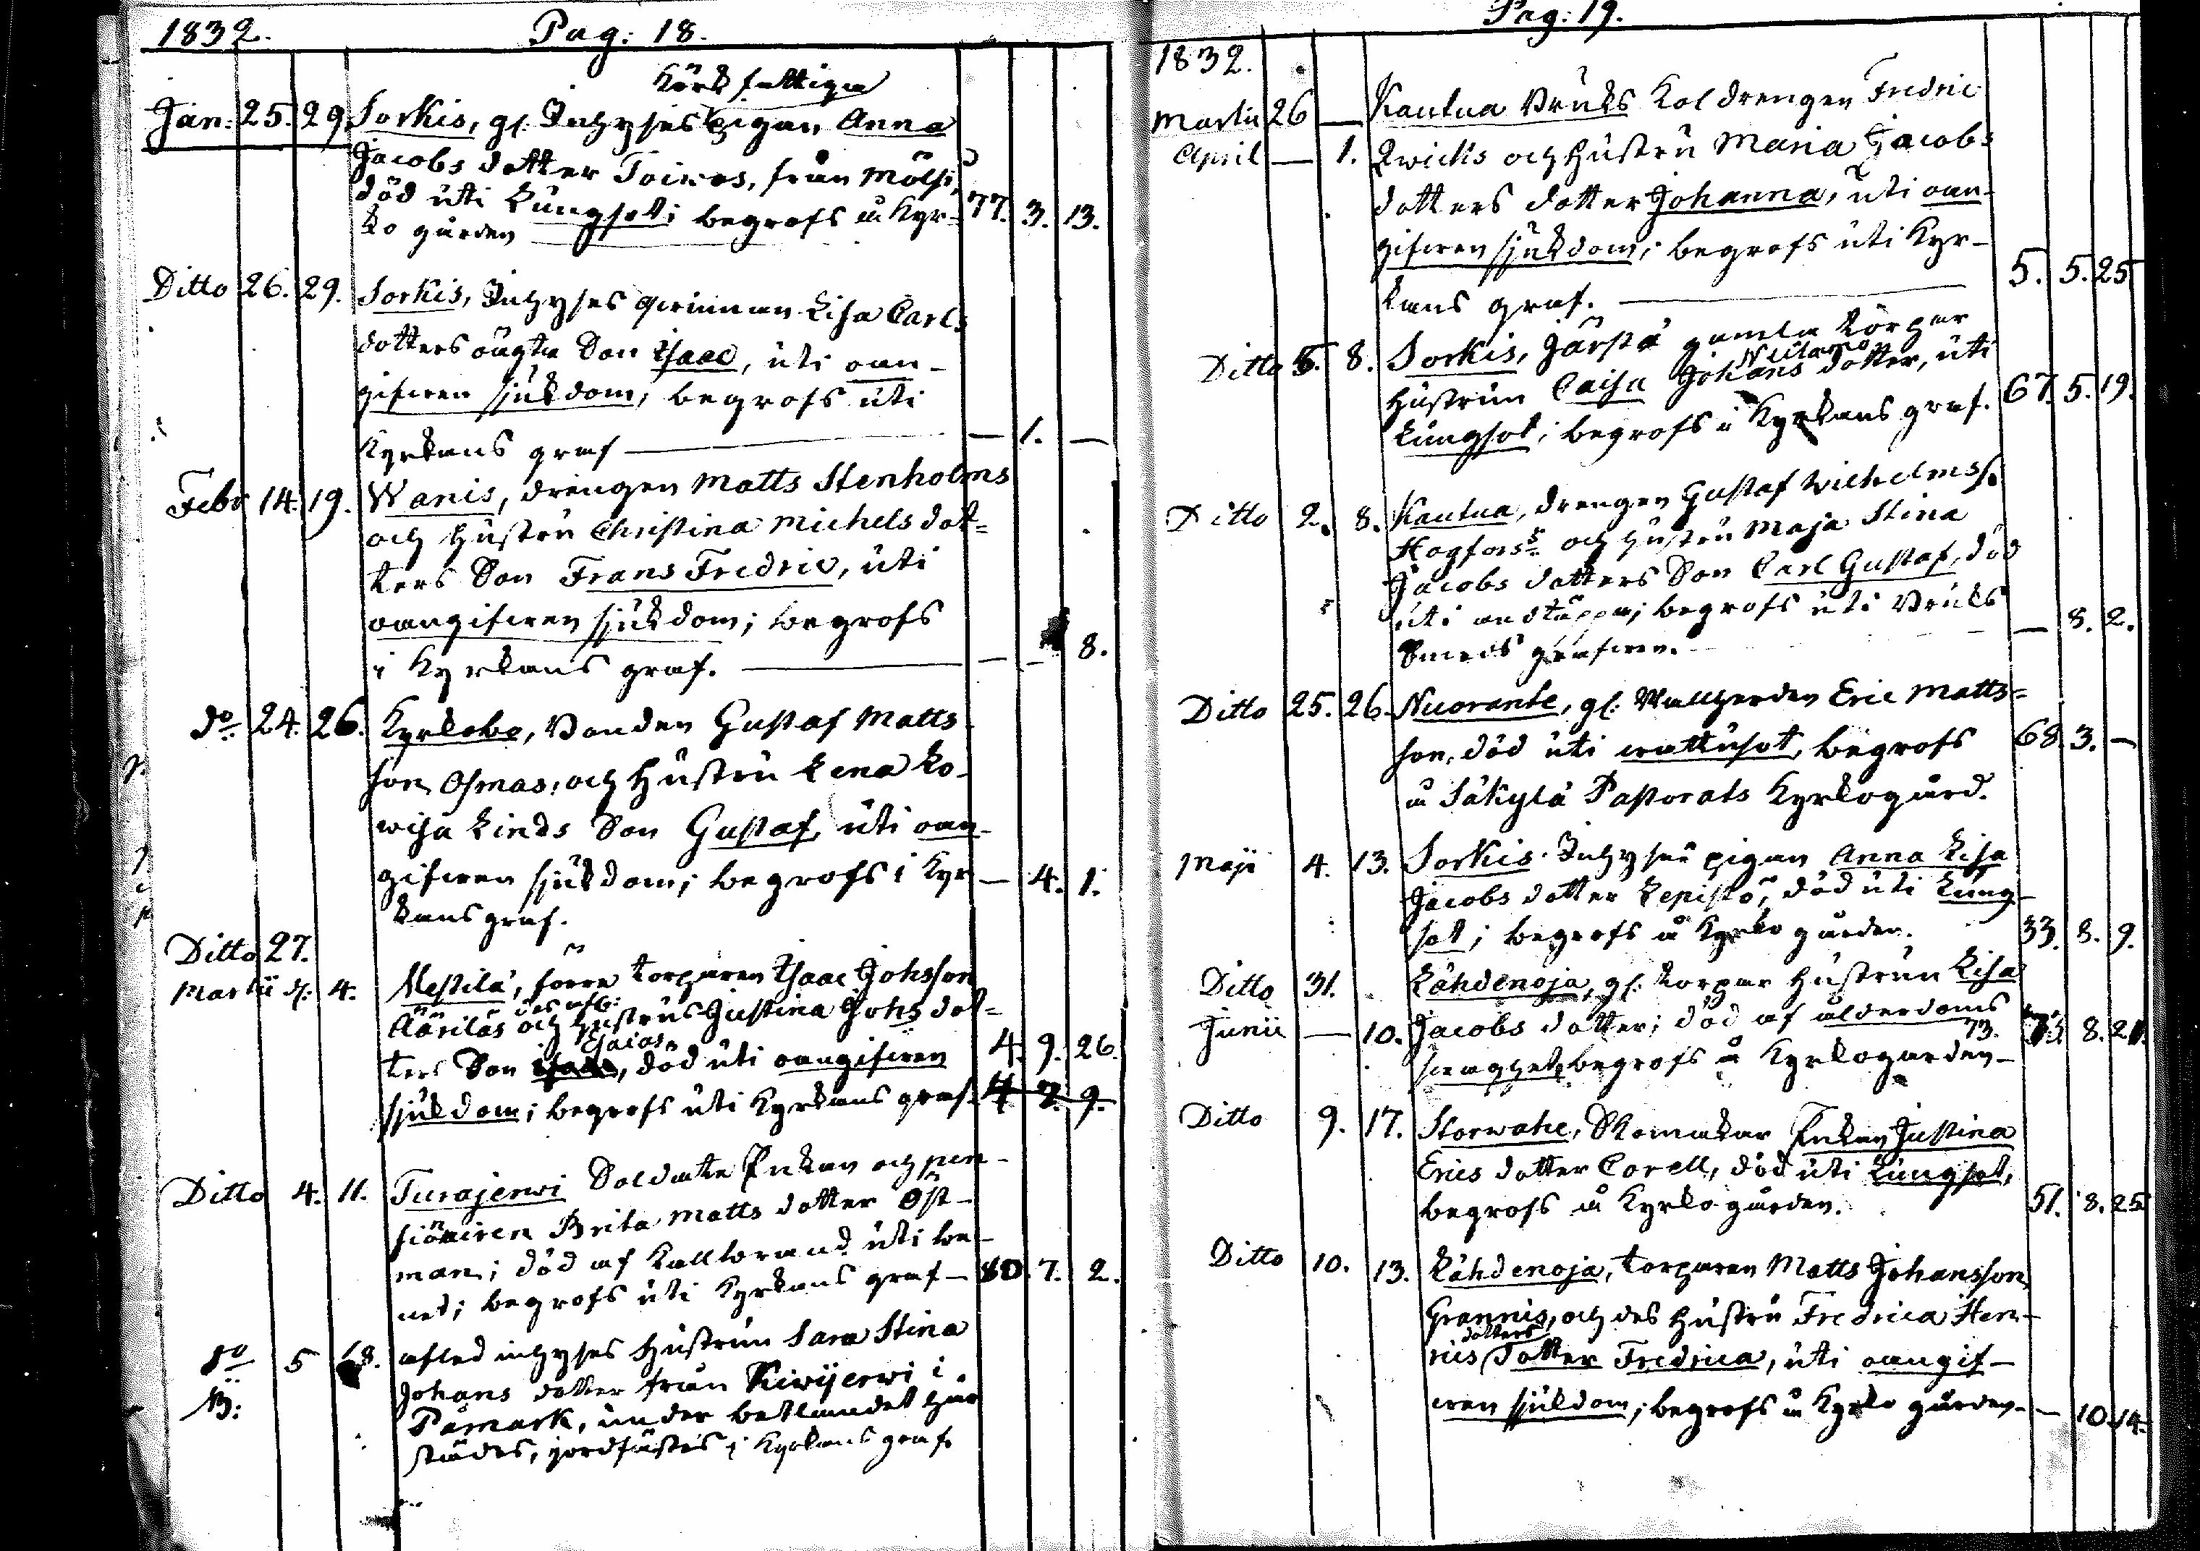 1832. Pag: 18.
Körk fattiga
Jan: 25. 29. Sorkis, gl. Inhyses pigan Anna
Jacobs dotter Toivos, från Mölsi,
död uti Lungsot; begrofs å Kyr- 77. 3. 13.
ko gården
Ditto 26. 29. Sorkis, Inhyses qwinnan Lisa Carls
dotters oägta Son Isaac, uti oan-
gifwen sjukdom; begrofs uti
Kyrkans graf — 1. —
Febr 14. 19. Wanis, drengen Matts Stenholms
och Hustru Christina Michels dot=
ters Son Frans Fredric, uti
oangifwen sjukdom; begrofs
i Kyrkans graf. — — 8.
do 24. 26. Kyrlobo, Bonden Gustaf Matts
son Osmas, och Hustru Lena Lo-
wisa Linds Son Gustaf, uti oan-
gifwen sjukdom; begrofs i Kyr — 4. 1.
kans graf.
Ditto 27.
Martii d: 4. Mestilä, förra torparen Isaac Johsson
des afl:
Ääriläs och Hustrus Justina Johs dot=
Esaias
ters Son Isaac, död uti oangifwen 4. 9. 26.
sjukdom; begrofs uti Kyrkans graf. 4 7. 9.
Ditto 4. 11. Turajerwi Soldate Enkan och pen-
sioniren Brita Matts dotter Öst-
man; död af Kallbrand uti be-
net; begrofs uti Kyrkans graf — 80. 7. 2.
do 5 18. afled inhyses Hustrun Sara Stina
Johans dotter från Kiwijerwi i
N: Påmark, under betlandet här
städes, jordfästes i Kyrkans graf.
Pag: 19.
1832.
Martii 26 — Kautua Bruks Kol drengen Fredric
April — 1. Qwicks och Hustru Maria Jacobs
dotters dotter Johanna, uti oan-
gifwen sjukdom; begrofs uti Kyr-
kans graf. — 5. 5. 25
Ditto 5. 8. Sorkis, Järstä gamla torpar
Nulamo
Hustrun Caisa Johans dotter, uti
Lungsot; begrofs i Kyrkans graf. 67. 5. 19.
Ditto 2. 8. Kautua, drengen Gustaf Wilhelmss.
Hogforss och Hustru Maja Stina
Jacobs dotters Son Carl Gustaf, död
uti andtäppa; begrofs uti Bruks
Smeds grafwen. — 8. 2.
Ditto 25. 26. Nuoranto, gl. Wallherden Eric Matts=
son, död uti wattusot, begrofs 68. 3. —
å Säkylä Pastorats Kyrkogård.
Maji 4. 13. Sorkis. Inhyses pigan Anna Lisa
Jacobs dotter Lepistö, död uti Lung-
sot; begrofs å Kyrko gården. 33. 8. 9.
Ditto 31. Lähdenoja, gl. torpar Hustrun Lisa
Junii — 10. Jacobs dotter; död af ålderdoms 73. 8. 21.
73.
swaghet; begrofs å Kyrkogården —
Ditto 9. 17. Storwahe, Skomakar Enkan Justina
Erics dotter Corell, död uti Lungsot,
begrofs å Kyrko gården. 51. 8. 25
Ditto 10. 13. Lähdenoja, torparen Matts Johansson
Grannis, och des Hustru Fredrica Hen-
dotters
rics Dotter Fredrica, uti oangif-
wen sjukdom; begrofs å Kyrko gården — — 10. 14.